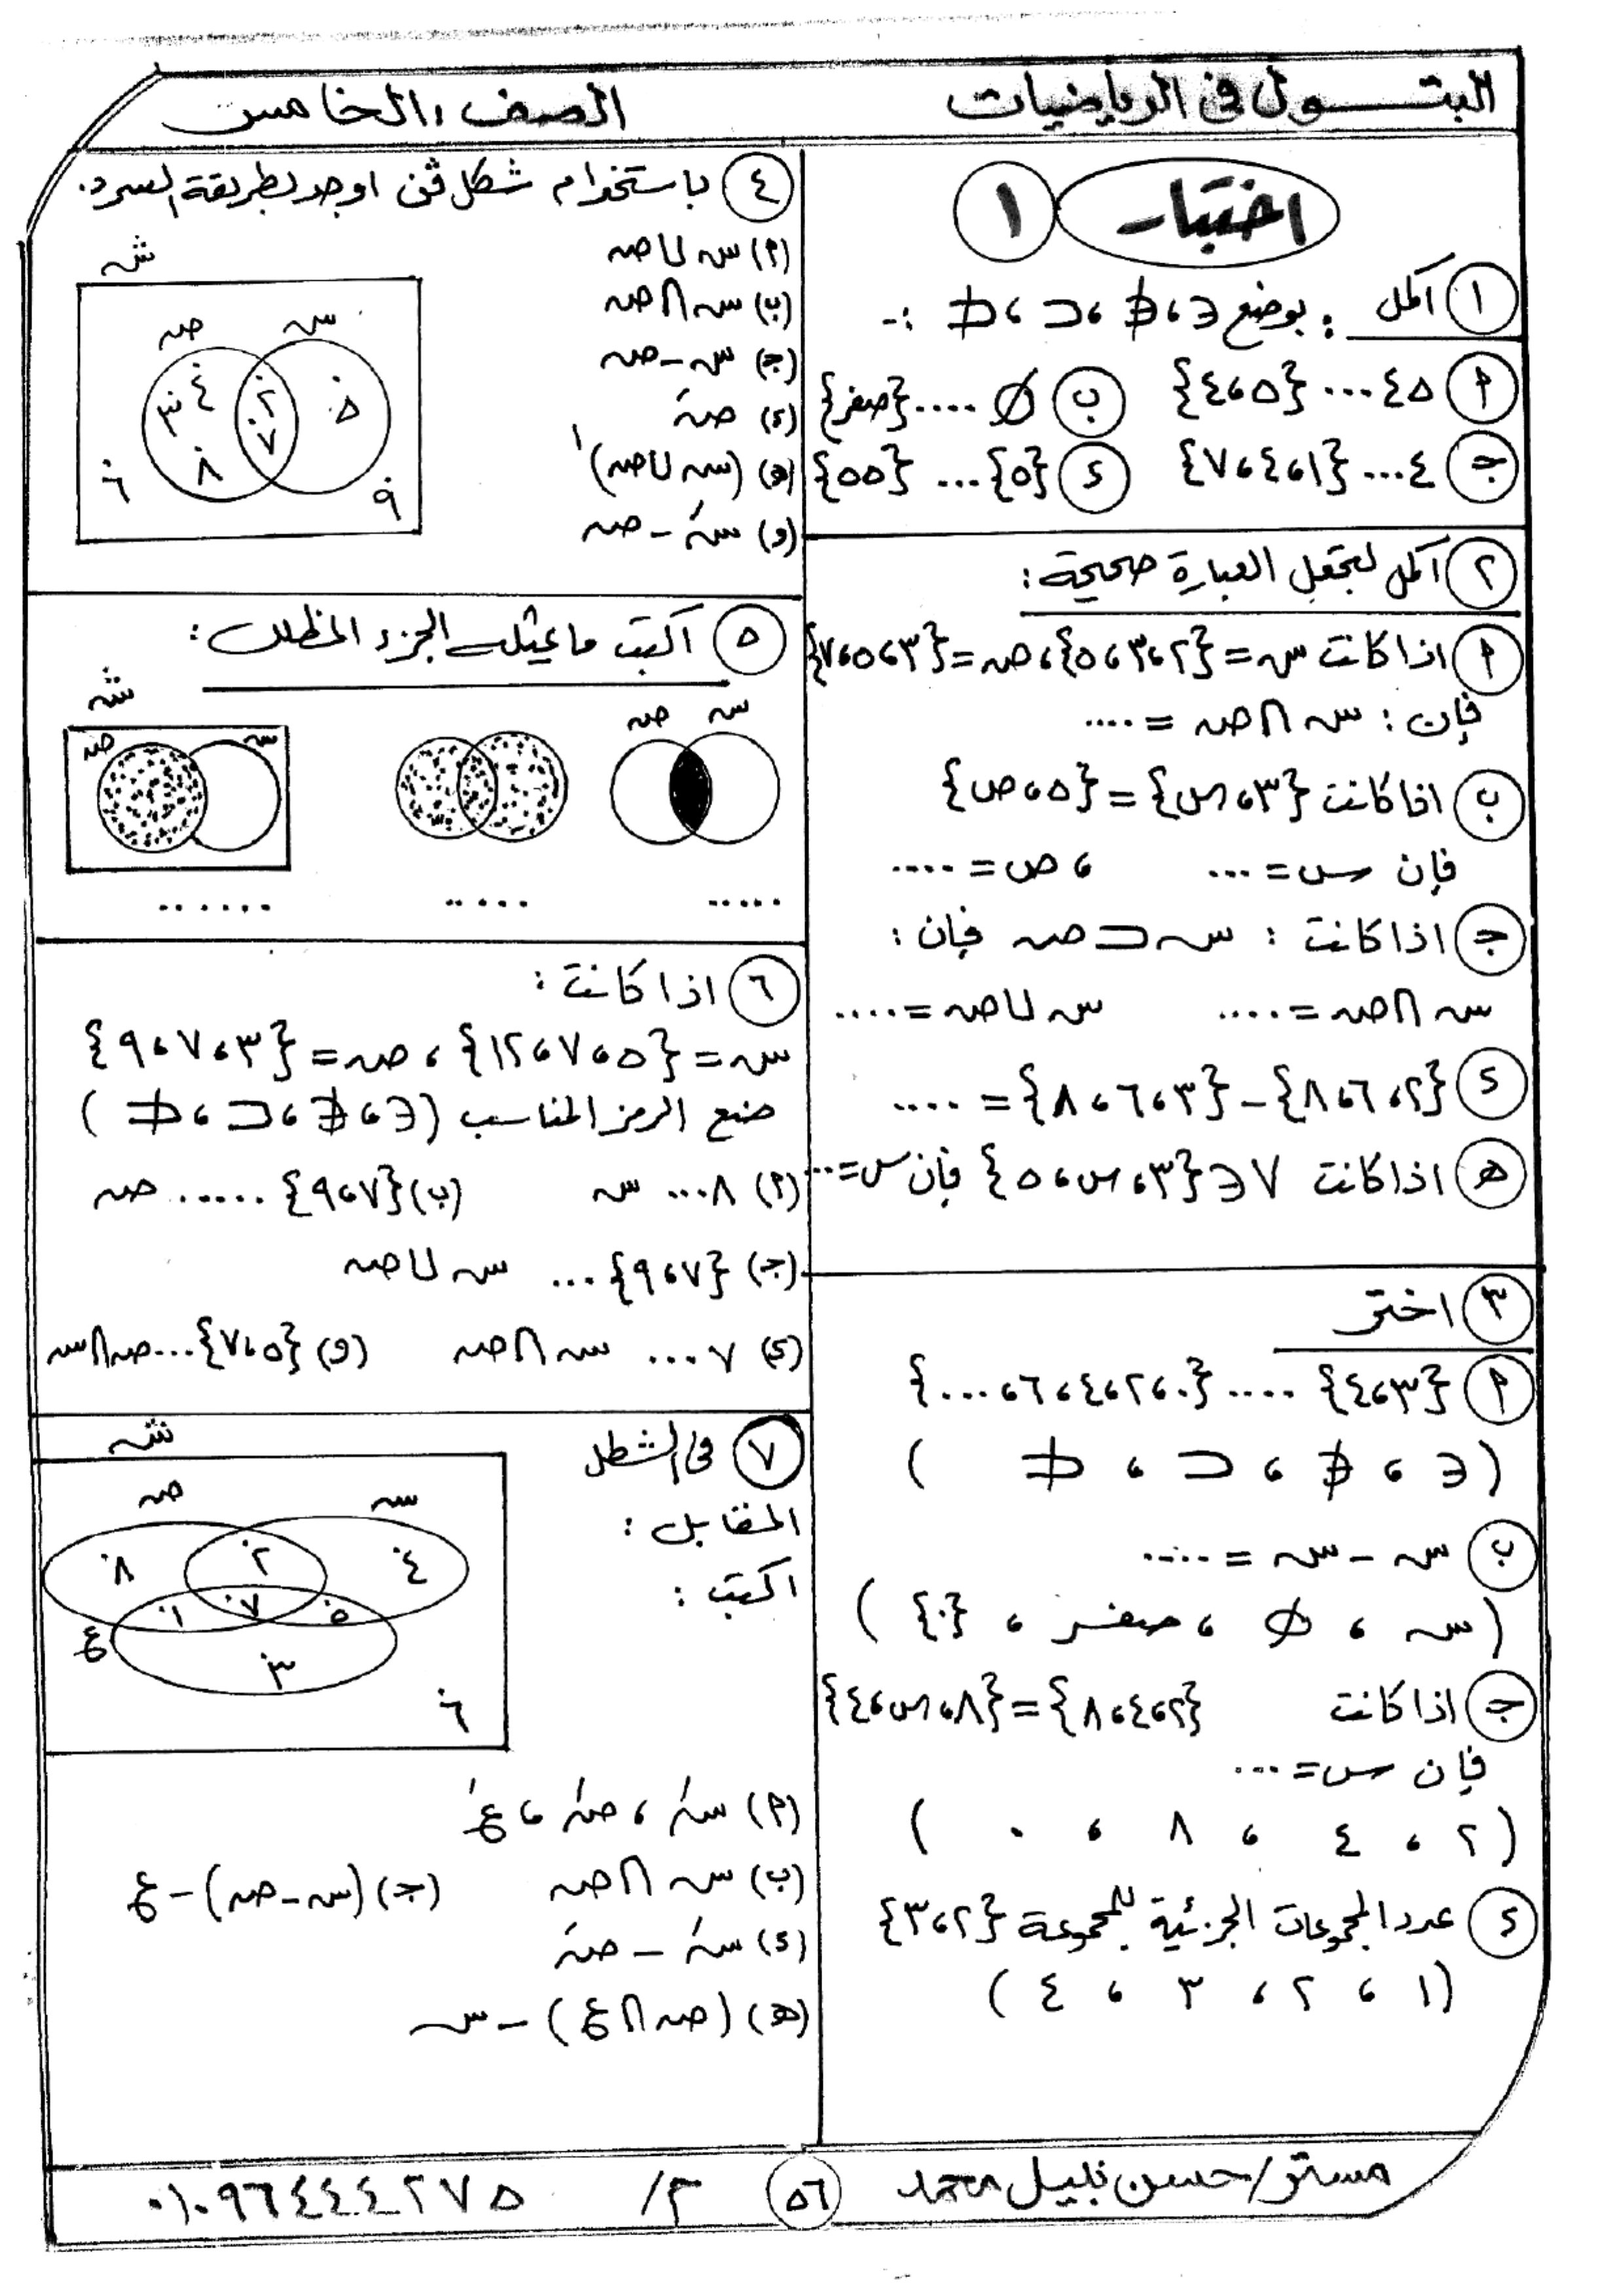 البتـــول فى الرياضيات
الصف الخامس
اختبار ١
١ اكمل بوضع ∋ ، ∌ ، ⊃ ، ⊅ :-
٢ ٤٥ ... {٤،٥}
ب ∅ .... {صفر}
جـ ٤ ... {٧،٤،١}
د {٥} ... {٥٥}
٢ اكمل لتجعل العبارة صحيحة :
٢ اذا كانت س = {٥،٣،٢} ، ص = {٧،٥،٣}
فإن : س ∩ ص = ....
ب اذا كانت {٣،س} = {٥،ص}
فإن س = ... ، ص = ....
جـ اذا كانت : س ⊃ ص فإن :
س ∩ ص = .... س ∪ ص = ....
د {٨،٦،٢} - {٨،٦،٣} = ....
هـ اذا كانت ٧ ∋ {٣،س،٥} فإن س = ...
٣ اختر
٢ {٤،٣} .... {٠،٢،٤،٦،...}
( ∋ ، ∌ ، ⊃ ، ⊅ )
ب س - س = .....
( س ، ∅ ، صفر ، {٠} )
جـ اذا كانت {٨،٤،٢} = {٨،س،٤}
فإن س = ...
( ٢ ، ٤ ، ٨ ، ٠ )
د عدد المجموعات الجزئية للمجموعة {٣،٢}
( ١ ، ٢ ، ٣ ، ٤ )
٤ باستخدام شكل ڤن اوجد بطريقة السرد.
(٢) س ∪ ص
(ب) س ∩ ص
(جـ) س - ص
(د) صَ
(هـ) (س ∪ ص)َ
(و) سَ - ص
ش
ص س
٣ ٤ ٨ ٢ ٧ ٥
٦ ٩
٥ اكتب ما يمثله الجزء المظلل :
س ص
ش
س ص
..... ..... ......
٦ اذا كانت :
س = {١٢،٧،٥} ، ص = {٩،٧،٣}
ضع الرمز المناسب ( ∋ ، ∌ ، ⊃ ، ⊅ )
(٢) ٨ ... س (ب) {٩،٧} ..... ص
(جـ) {٩،٧} ... س ∪ ص
(د) ٧ ... س ∩ ص (و) {٧،٥} ... ص ∩ س
٧ فى الشكل
المقابل :
اكتب :
ش
ص س
٨ ٢ ٤
١ ٧ ٥
ع ٣
٦
(٢) سَ ، صَ ، عَ
(ب) س ∩ ص (جـ) (س - ص) - ع
(د) سَ - صَ
(هـ) (ص ∩ ع) - س
مستر/حسن نبيل محمد
٥٦
م/ ٠١٠٩٦٤٤٤٢٧٥